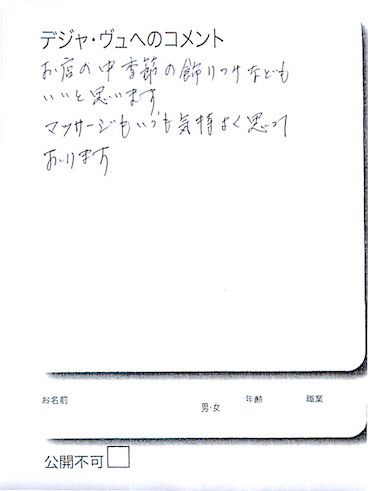 デジャ・ヴュへのコメント
お店の中季節の飾りつけなども
いいと思います。
マッサージもいつも気持よく思って
おります。
お名前
男・女
年齢
職業
公開不可